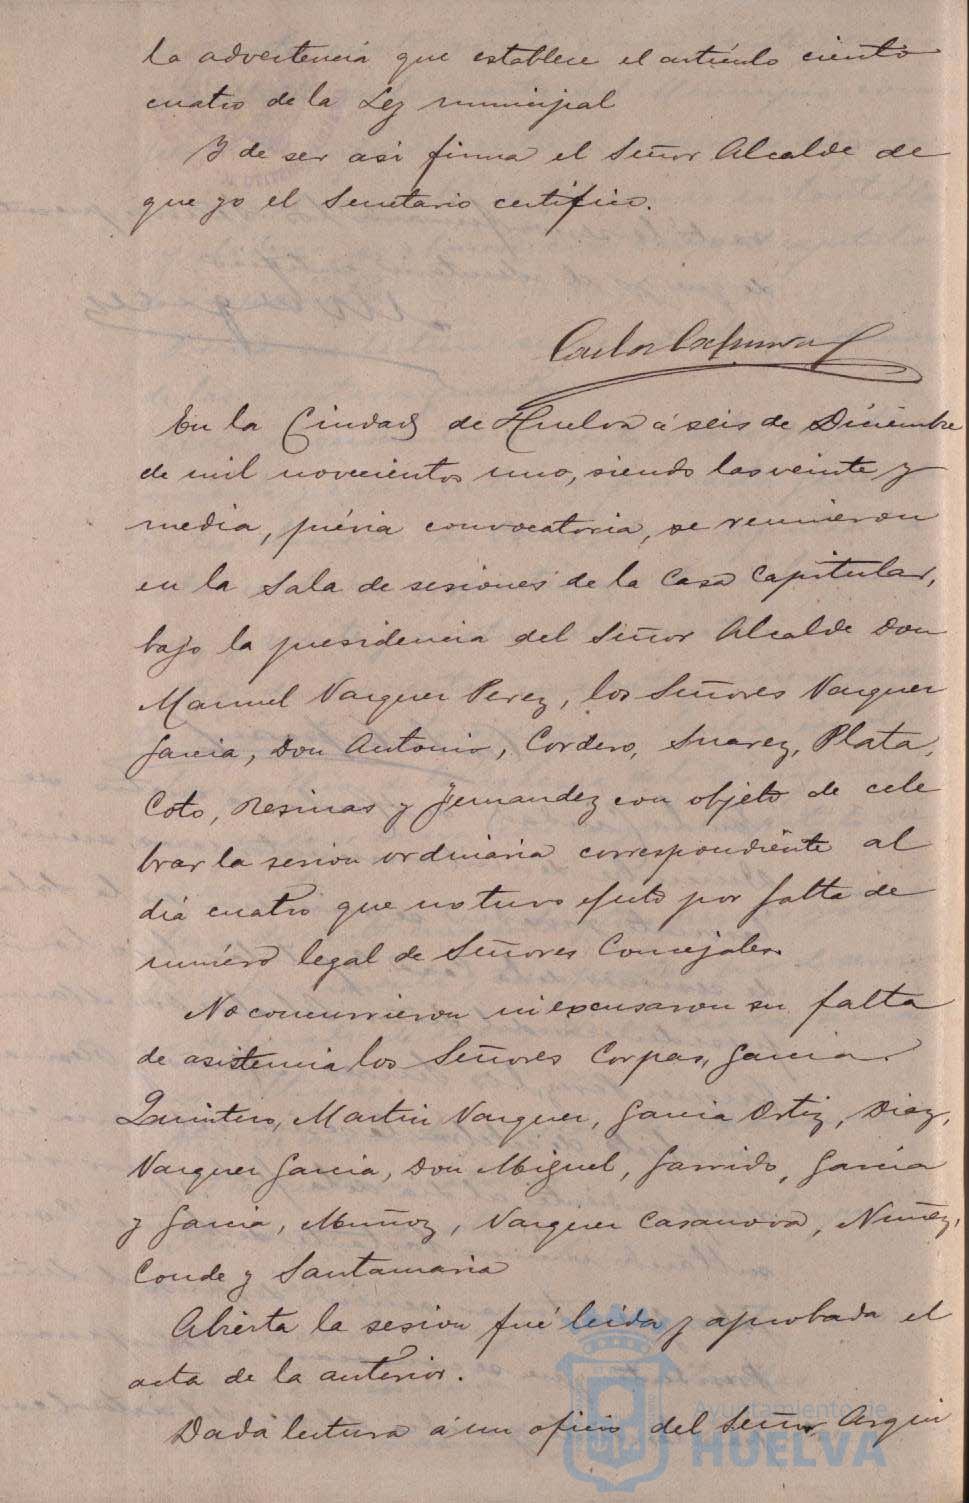 la advertencia que establece el artículo ciento
cuatro de la Ley municipal
Y de ser asi firma el Señor Alcalde de
que yo el Secretario certifico.
Carlos
En la Ciudad de Huelva á seis de Diciembre
de mil novecientos uno, siendo las veinte y
media, prévia convocatoria, se reunieron
en la Sala de sesiones de la Casa Capitular,
bajo la presidencia del Señor Alcalde Don
Manuel Vazquez Perez, los Señores Vazquez
Garcia, Don Antonio, Cordero, Suarez, Plata,
Coto, Resinas y Fernandez con objeto de cele
brar la sesion ordinaria correspondiente al
dia cuatro que no tuvo efecto por falta de
número legal de Señores Concejales.
No concurrieron ni excusaron su falta
de asistencia los Señores Corpas, Garcia
Quintero, Martin Vazquez, Garcia Ortiz, Diaz,
Vazquez Garcia, Don Miguel, Garrido, Garcia
y Garcia, Muñoz, Vazquez Casanova, Nuñez,
Conde y Santamaria
Abierta la sesion fué leida y aprobada el
acta de la anterior.
Dada lectura á un oficio del Señor Arqui
Ayuntamiento de
HUELVA